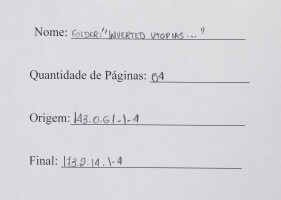 Nome: FOLDER: "INVERTED UTOPIAS ..."
Quantidade de Páginas: 04
Origem: 143.0.61-1-4
Final: 173.2.14.1-4